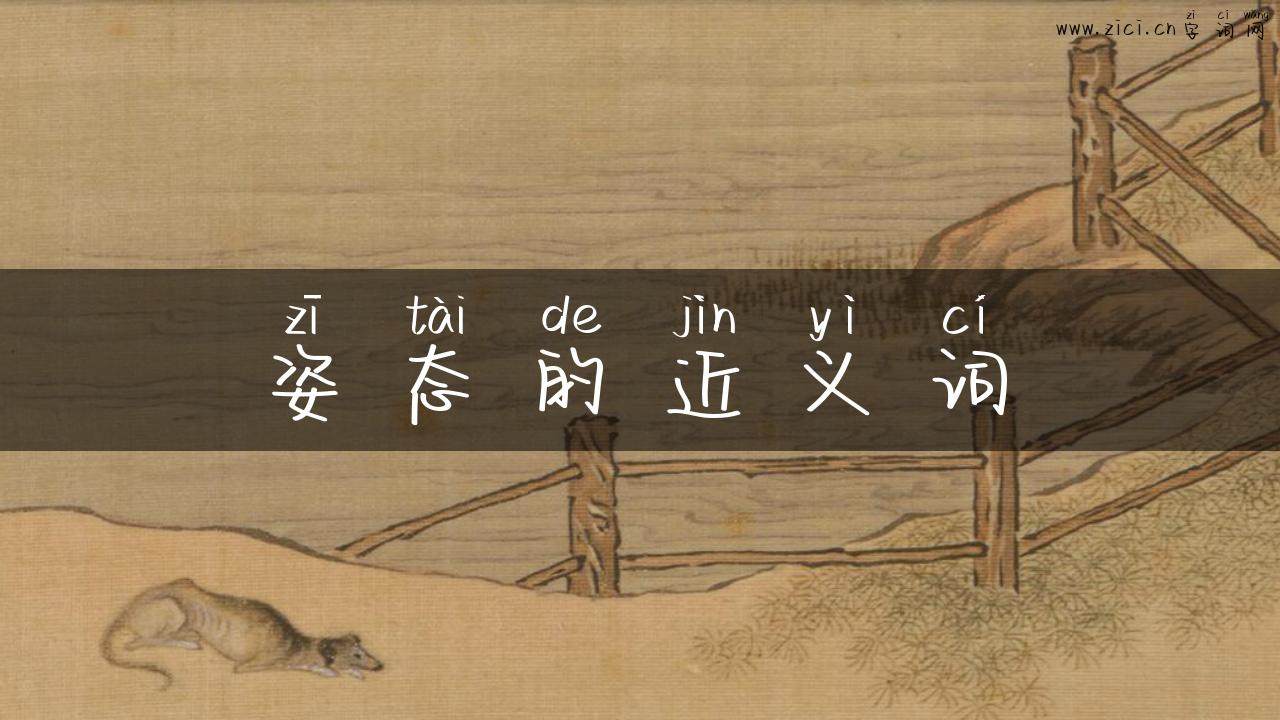 zì cí wǎng
www.zici.cn字词网
zī tài de jìn yì cí
姿态的近义词